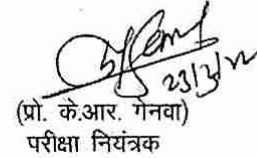 23/3/22
(प्रो. के.आर. गेनवा)
परीक्षा नियंत्रक